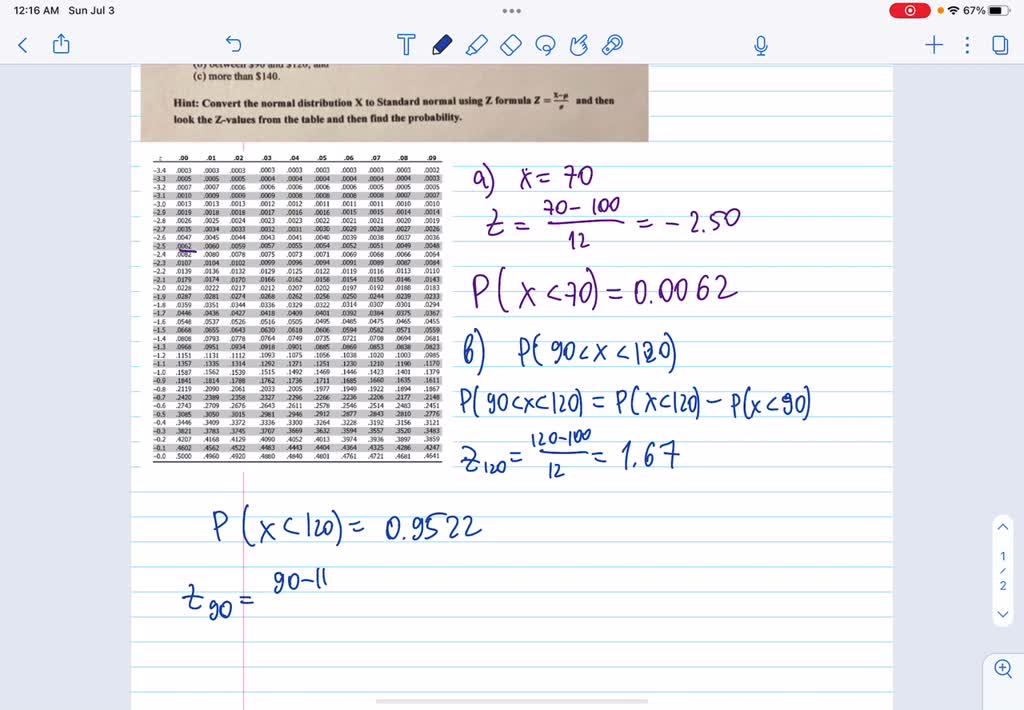 12:16 AM Sun Jul 3
67%
(c) more than $140.
Hint: Convert the normal distribution X to Standard normal using Z formula Z = x-μ/σ and then
look the Z-values from the table and then find the probability.
z .00 .01 .02 .03 .04 .05 .06 .07 .08 .09
-3.4 .0003 .0003 .0003 .0003 .0003 .0003 .0003 .0003 .0003 .0002
-3.3 .0005 .0005 .0005 .0004 .0004 .0004 .0004 .0004 .0004 .0003
-3.2 .0007 .0007 .0006 .0006 .0006 .0006 .0006 .0005 .0005 .0005
-3.1 .0010 .0009 .0009 .0009 .0008 .0008 .0008 .0008 .0007 .0007
-3.0 .0013 .0013 .0013 .0012 .0012 .0011 .0011 .0011 .0010 .0010
-2.9 .0019 .0018 .0018 .0017 .0016 .0016 .0015 .0015 .0014 .0014
-2.8 .0026 .0025 .0024 .0023 .0023 .0022 .0021 .0021 .0020 .0019
-2.7 .0035 .0034 .0033 .0032 .0031 .0030 .0029 .0028 .0027 .0026
-2.6 .0047 .0045 .0044 .0043 .0041 .0040 .0039 .0038 .0037 .0036
-2.5 .0062 .0060 .0059 .0057 .0055 .0054 .0052 .0051 .0049 .0048
-2.4 .0082 .0080 .0078 .0075 .0073 .0071 .0069 .0068 .0066 .0064
-2.3 .0107 .0104 .0102 .0099 .0096 .0094 .0091 .0089 .0087 .0084
-2.2 .0139 .0136 .0132 .0129 .0125 .0122 .0119 .0116 .0113 .0110
-2.1 .0179 .0174 .0170 .0166 .0162 .0158 .0154 .0150 .0146 .0143
-2.0 .0228 .0222 .0217 .0212 .0207 .0202 .0197 .0192 .0188 .0183
-1.9 .0287 .0281 .0274 .0268 .0262 .0256 .0250 .0244 .0239 .0233
-1.8 .0359 .0351 .0344 .0336 .0329 .0322 .0314 .0307 .0301 .0294
-1.7 .0446 .0436 .0427 .0418 .0409 .0401 .0392 .0384 .0375 .0367
-1.6 .0548 .0537 .0526 .0516 .0505 .0495 .0485 .0475 .0465 .0455
-1.5 .0668 .0655 .0643 .0630 .0618 .0606 .0594 .0582 .0571 .0559
-1.4 .0808 .0793 .0778 .0764 .0749 .0735 .0721 .0708 .0694 .0681
-1.3 .0968 .0951 .0934 .0918 .0901 .0885 .0869 .0853 .0838 .0823
-1.2 .1151 .1131 .1112 .1093 .1075 .1056 .1038 .1020 .1003 .0985
-1.1 .1357 .1335 .1314 .1292 .1271 .1251 .1230 .1210 .1190 .1170
-1.0 .1587 .1562 .1539 .1515 .1492 .1469 .1446 .1423 .1401 .1379
-0.9 .1841 .1814 .1788 .1762 .1736 .1711 .1685 .1660 .1635 .1611
-0.8 .2119 .2090 .2061 .2033 .2005 .1977 .1949 .1922 .1894 .1867
-0.7 .2420 .2389 .2358 .2327 .2296 .2266 .2236 .2206 .2177 .2148
-0.6 .2743 .2709 .2676 .2643 .2611 .2578 .2546 .2514 .2483 .2451
-0.5 .3085 .3050 .3015 .2981 .2946 .2912 .2877 .2843 .2810 .2776
-0.4 .3446 .3409 .3372 .3336 .3300 .3264 .3228 .3192 .3156 .3121
-0.3 .3821 .3783 .3745 .3707 .3669 .3632 .3594 .3557 .3520 .3483
-0.2 .4207 .4168 .4129 .4090 .4052 .4013 .3974 .3936 .3897 .3859
-0.1 .4602 .4562 .4522 .4483 .4443 .4404 .4364 .4325 .4286 .4247
-0.0 .5000 .4960 .4920 .4880 .4840 .4801 .4761 .4721 .4681 .4641
a) x = 70
z = 70-100/12 = -2.50
P(x<70) = 0.0062
b) P(90<x<120)
P(90<x<120) = P(x<120) - P(x<90)
z120 = 120-100/12 = 1.67
P(x<120) = 0.9522
z90 = 90-11
1
/
2